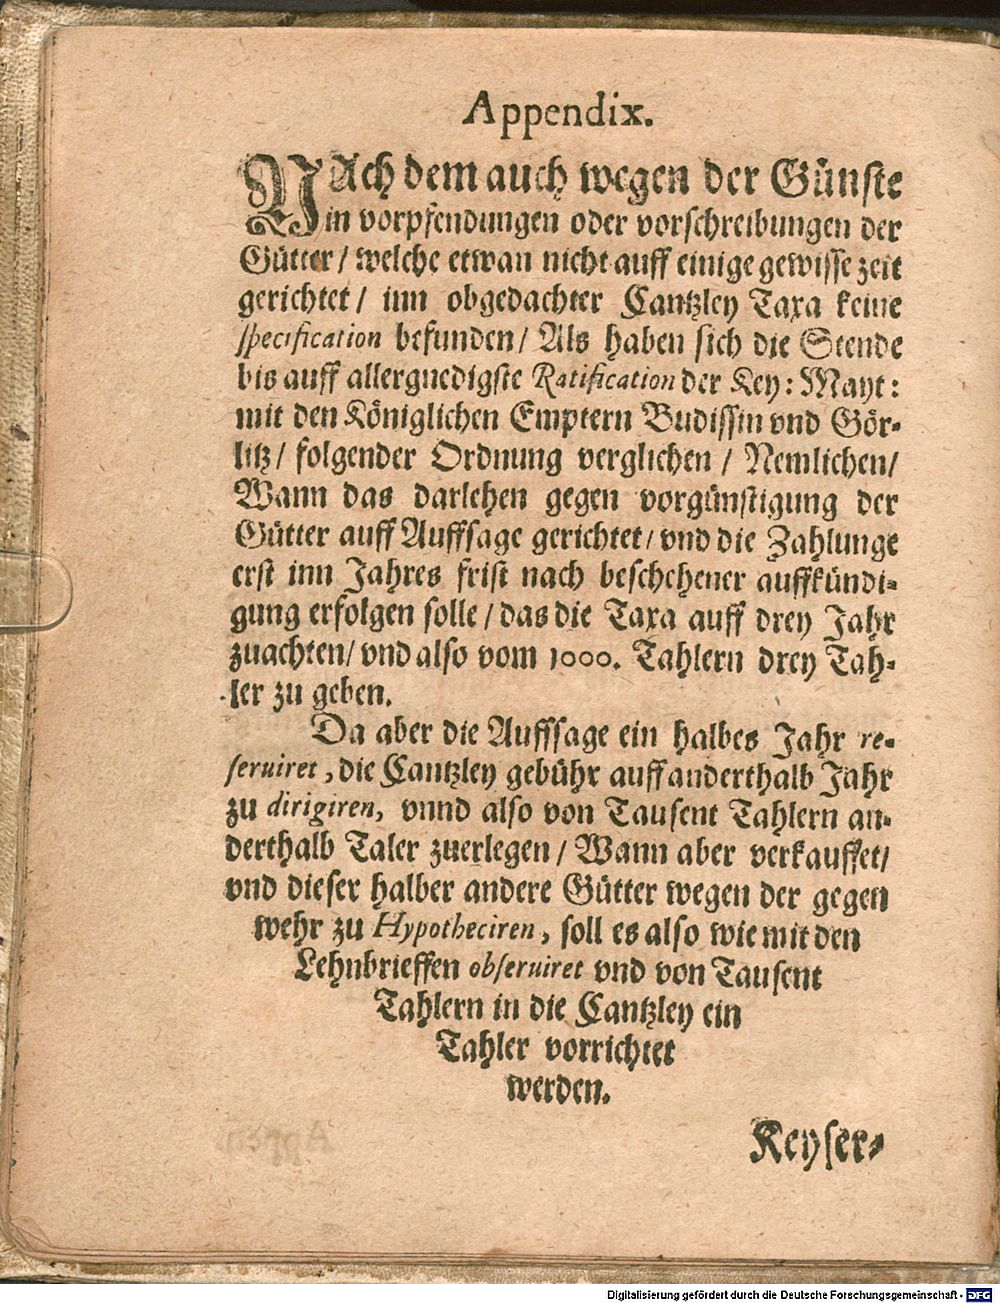 Appendix.
NAch dem auch wegen der Günste
in vorpfendungen oder vorschreibungen der
Gütter / welche etwan nicht auff einige gewisse zeit
gerichtet / inn obgedachter Cantzley Taxa keine
specification befunden / Als haben sich die Stende
bis auff allergnedigste Ratification der Key: Mayt:
mit den Königlichen Emptern Budissin vnd Gör-
litz / folgender Ordnung verglichen / Nemlichen /
Wann das darlehen gegen vorgünstigung der
Gütter auff Auffsage gerichtet / vnd die Zahlunge
erst inn Jahres frist nach beschehener auffkündi-
gung erfolgen solle / das die Taxa auff drey Jahr
zuachten / vnd also vom 1000. Tahlern drey Tah-
ler zu geben.
Da aber die Auffsage ein halbes Jahr re-
seruiret, die Cantzley gebühr auff anderthalb Jahr
zu dirigiren, vnnd also von Tausent Tahlern an-
derthalb Taler zuerlegen / Wann aber verkauffet /
vnd dieser halber andere Gütter wegen der gegen
wehr zu Hypotheciren, soll es also wie mit den
Lehnbrieffen obseruiret vnd von Tausent
Tahlern in die Cantzley ein
Tahler vorrichtet
werden.
Keyser-
Digitalisierung gefördert durch die Deutsche Forschungsgemeinschaft - DFG